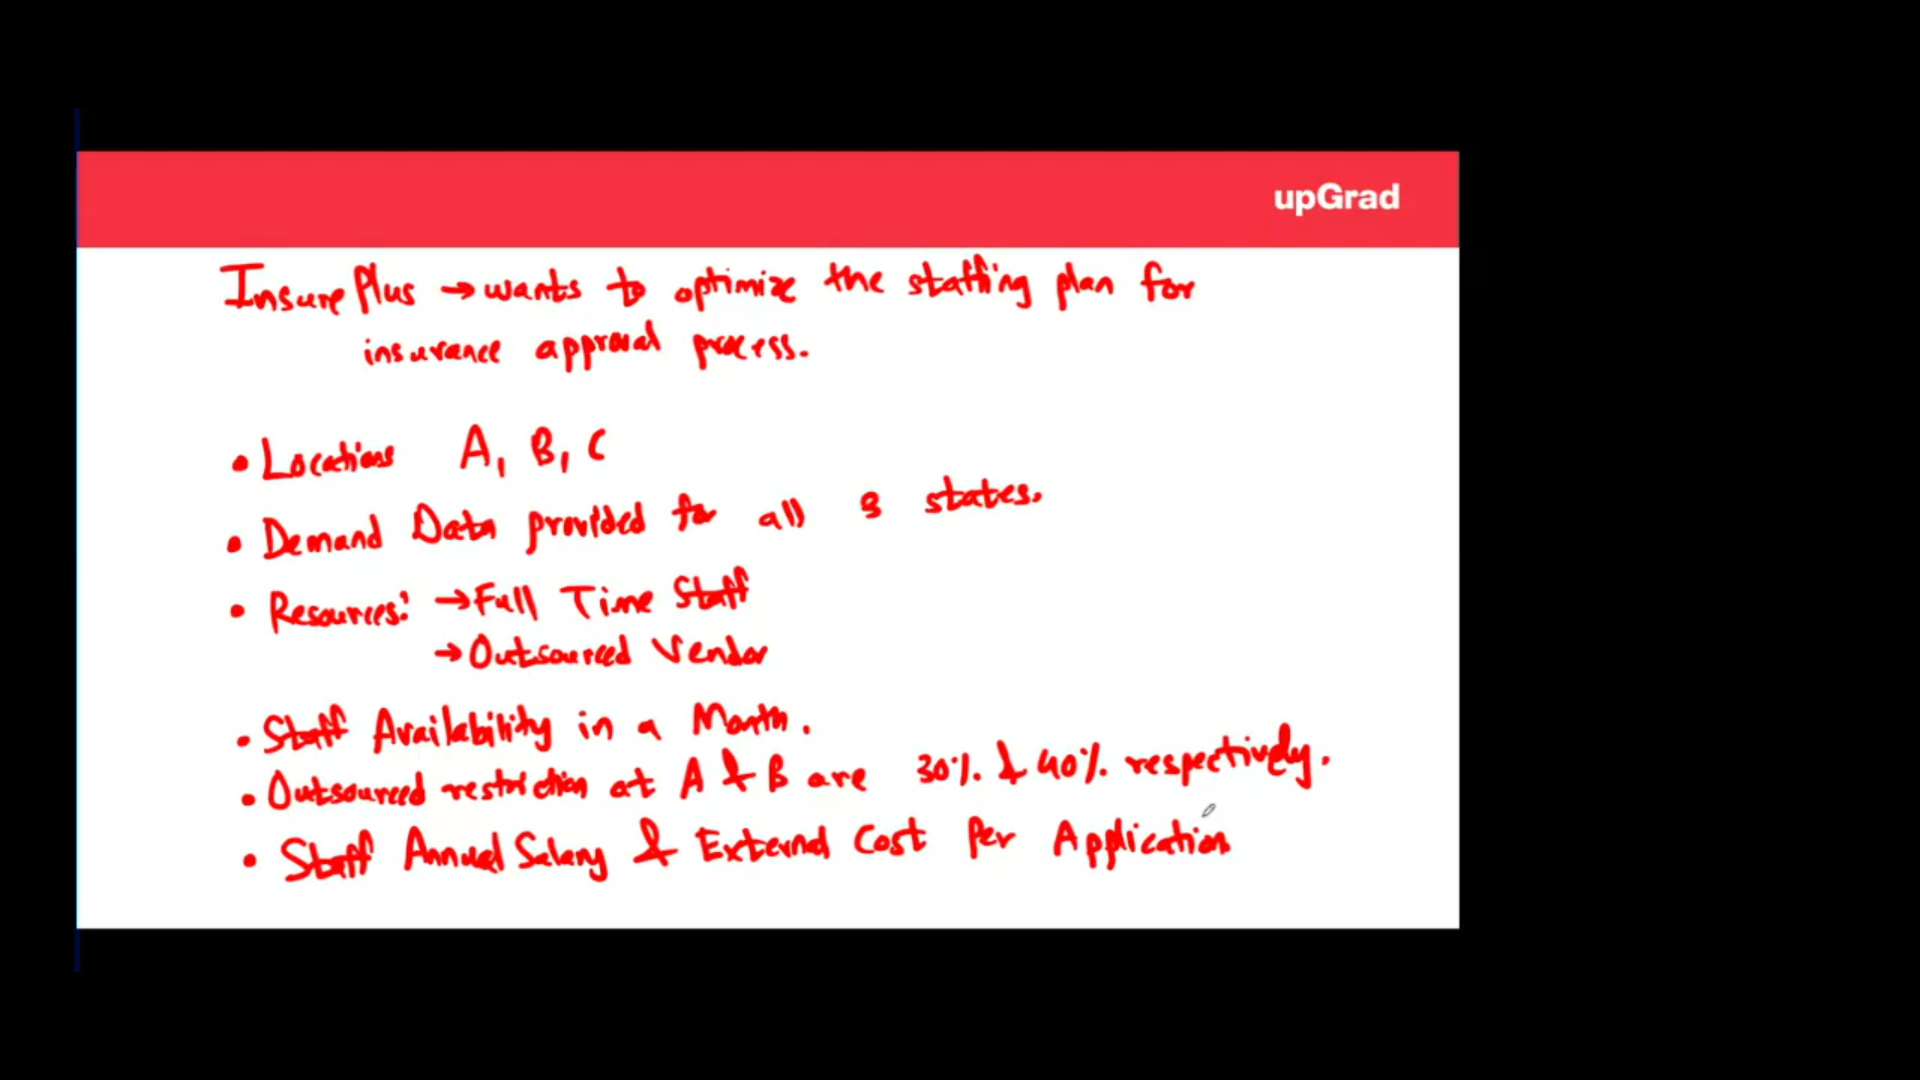 upGrad
InsurePlus → wants to optimize the staffing plan for
insurance approval process.
• Locations A, B, C
• Demand Data provided for all 3 states.
• Resources: → Full Time Staff
→ Outsourced Vendor
• Staff Availability in a Month.
• Outsourced restriction at A & B are 30% & 40% respectively.
• Staff Annual Salary & External Cost Per Application